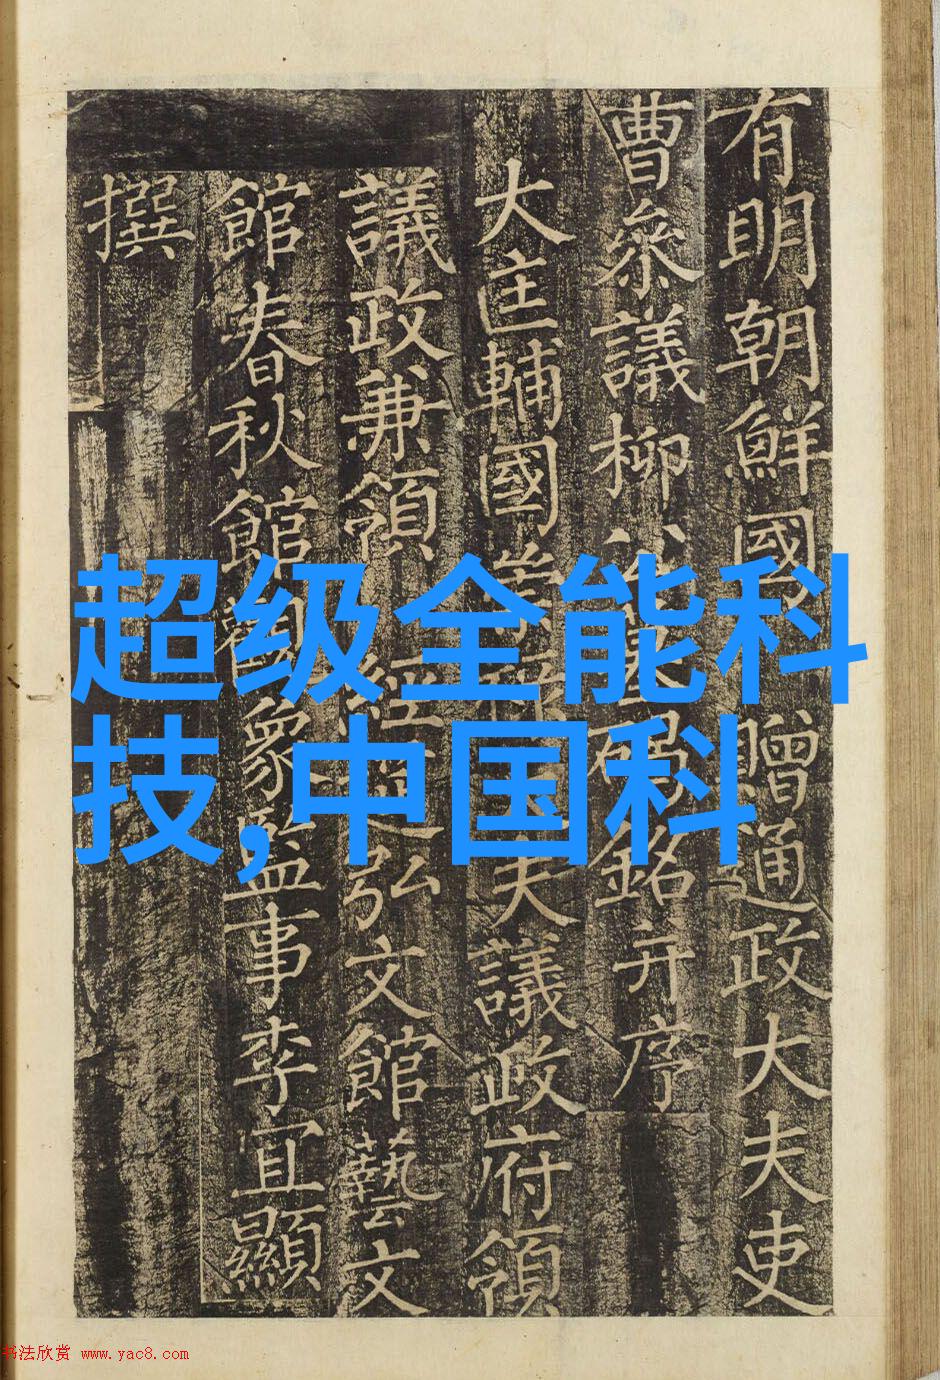 有明朝鮮國 贈通政大夫吏
曹參議柳公碣銘并序
大匡輔國崇夫議政府領
議政兼領經弘文館藝文
館春秋館觀象監事李宜顯
撰
超级全能科
技,中国科
书法欣赏 www.yac8.com